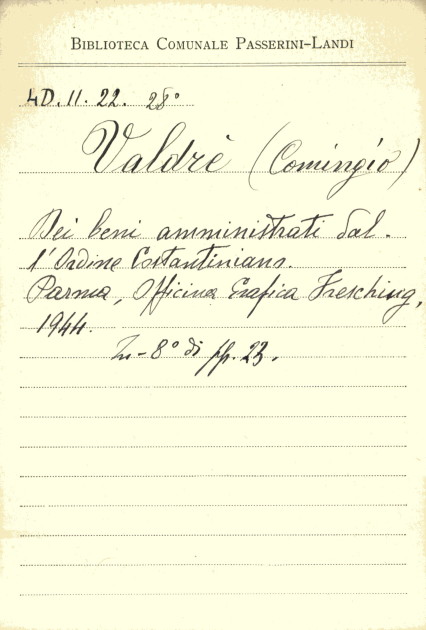 BIBLIOTECA COMUNALE PASSERINI-LANDI
4D. 11. 22. 28°
Valdrè (Comingio)
Dei beni amministrati dal-
l'Ordine Costantiniano.
Parma, Officina Grafica Fresching,
1944.
In-8° di pp. 23.